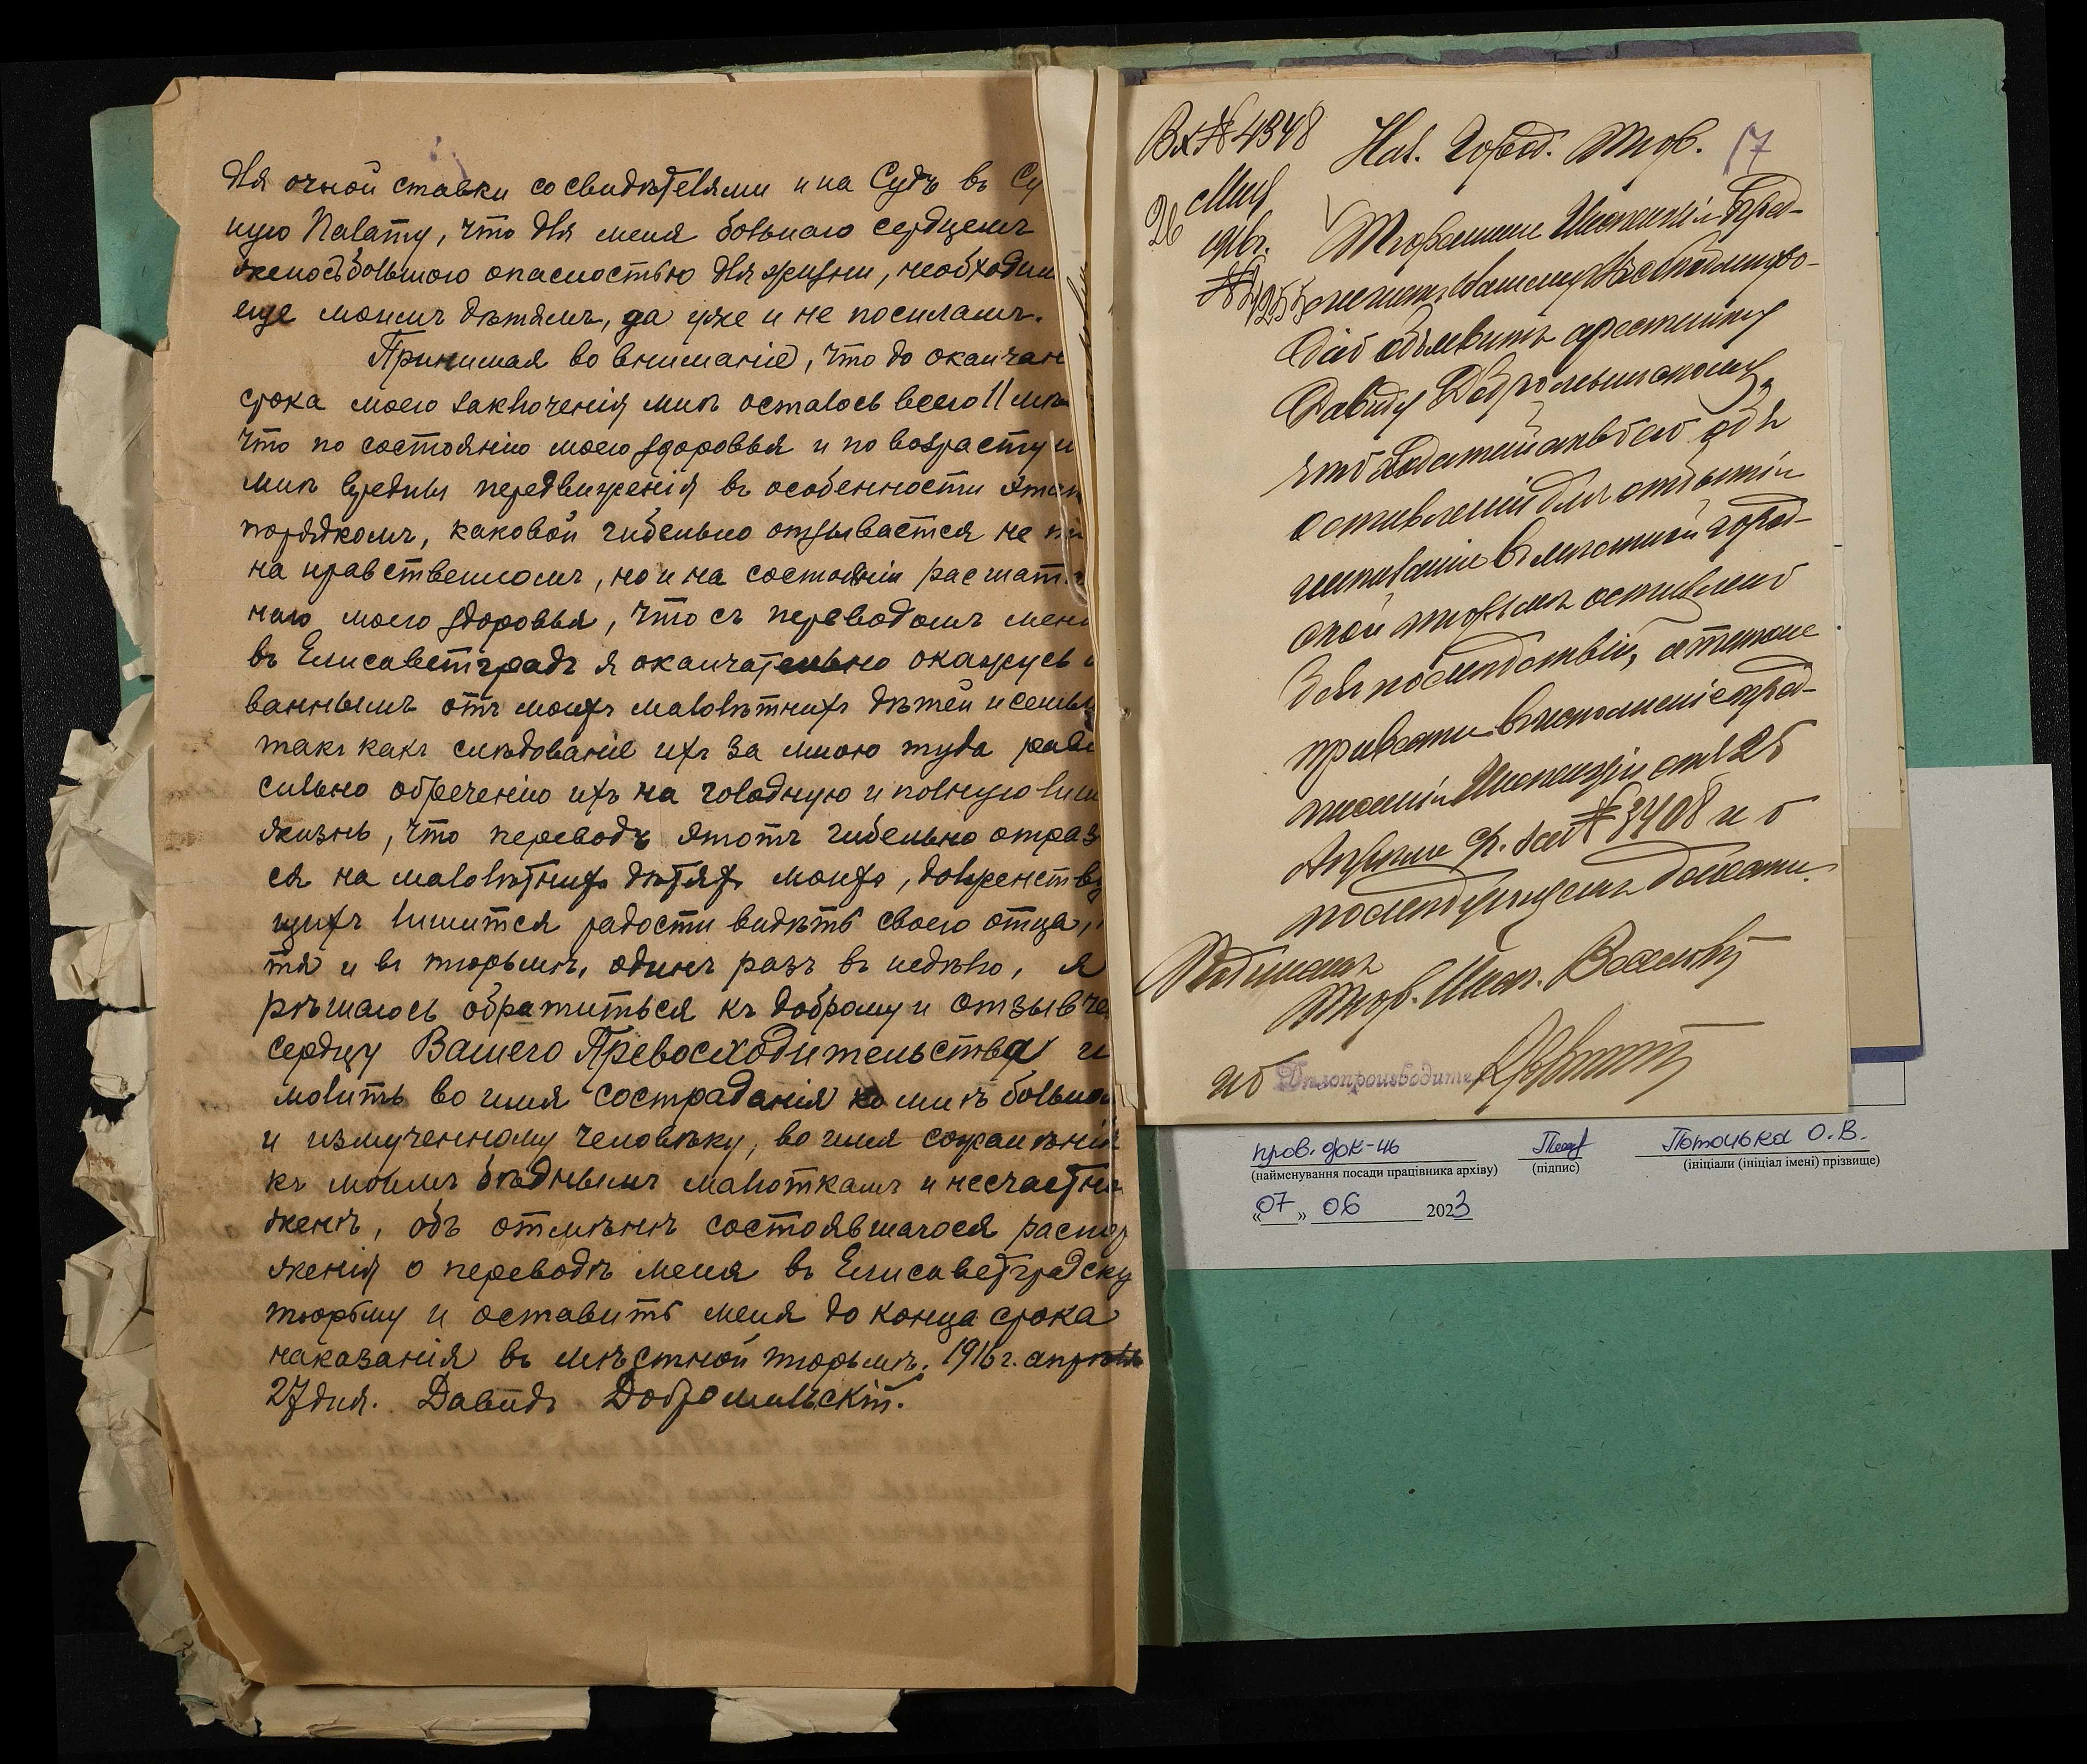 для очной ставки со свидѣтелями и на Судъ въ Су
ную Палату, что для меня больного сердцемъ
большою опасностью для жизни, необходим
еще моимъ дѣтямъ, да уже и не посиламъ.
Принимая во вниманіе, что до окончан
срока моего заключенія мнѣ осталось всего 11 мѣ
что по состоянію моего здоровья и по возрасту и
мнѣ вредны передвиженія въ особенности этап
порядкомъ, каковой гибельно отзывается не
на нравственномъ, но и на состояніи расшат
наго моего здоровья, что съ переводомъ мен
въ Елисаветградъ я окончательно окажусь
ваннымъ отъ моихъ малолѣтнихъ дѣтей и семьи
такъ какъ слѣдованіе ихъ за мною туда равно
сильно обреченію ихъ на голодную и полную лиш
жизнь, что переводъ этотъ гибельно отраз
ся на малолѣтнихъ дѣтяхъ моихъ,
щихъ лишится радости видѣть своего отца,
тя и въ тюрьмѣ, одинъ разъ въ недѣлю, я
рѣшаюсь обратиться къ доброму и отзывче
сердцу Вашего Превосходительства и
молить во имя состраданія ко мнѣ больно
и измученному человѣку, во имя сожалѣнія
къ моимъ бѣднымъ малюткамъ и несчастно
женѣ, объ отмѣнѣ состоявшагося распор
женія о переводѣ меня въ Елисаветградску
тюрьму и оставить меня до конца срока
наказанія въ мѣстной тюрьмѣ. 1916 г. апрѣля
27 дня. Давидъ Добромильскій.
Вх № 4348
26 Мая
1916 г.
№ 4255
Нач. Город. Тюр. 17
Тюремная Инспекція пред-
лагаетъ Вашему Высокоблагоро-
дію объявить арестанту
Давиду Добромильскому,
что ходатайство его объ
оставленіи для отбытія
наказанія въ мѣстной город-
ской тюрьмѣ оставлено
безъ послѣдствій, а также
привести въ исполненіе пред-
писаніе Инспекціи отъ 25
Апрѣля с. г. за № 3408 и о
послѣдующемъ донести.
Подписалъ
Тюр. Инсп.
Дѣлопроизводитель
пров. док-ць
(найменування посади працівника архіву)
(підпис)
Потоцька О.В.
(ініціали (ініціал імені) прізвище)
«07» 06 2023